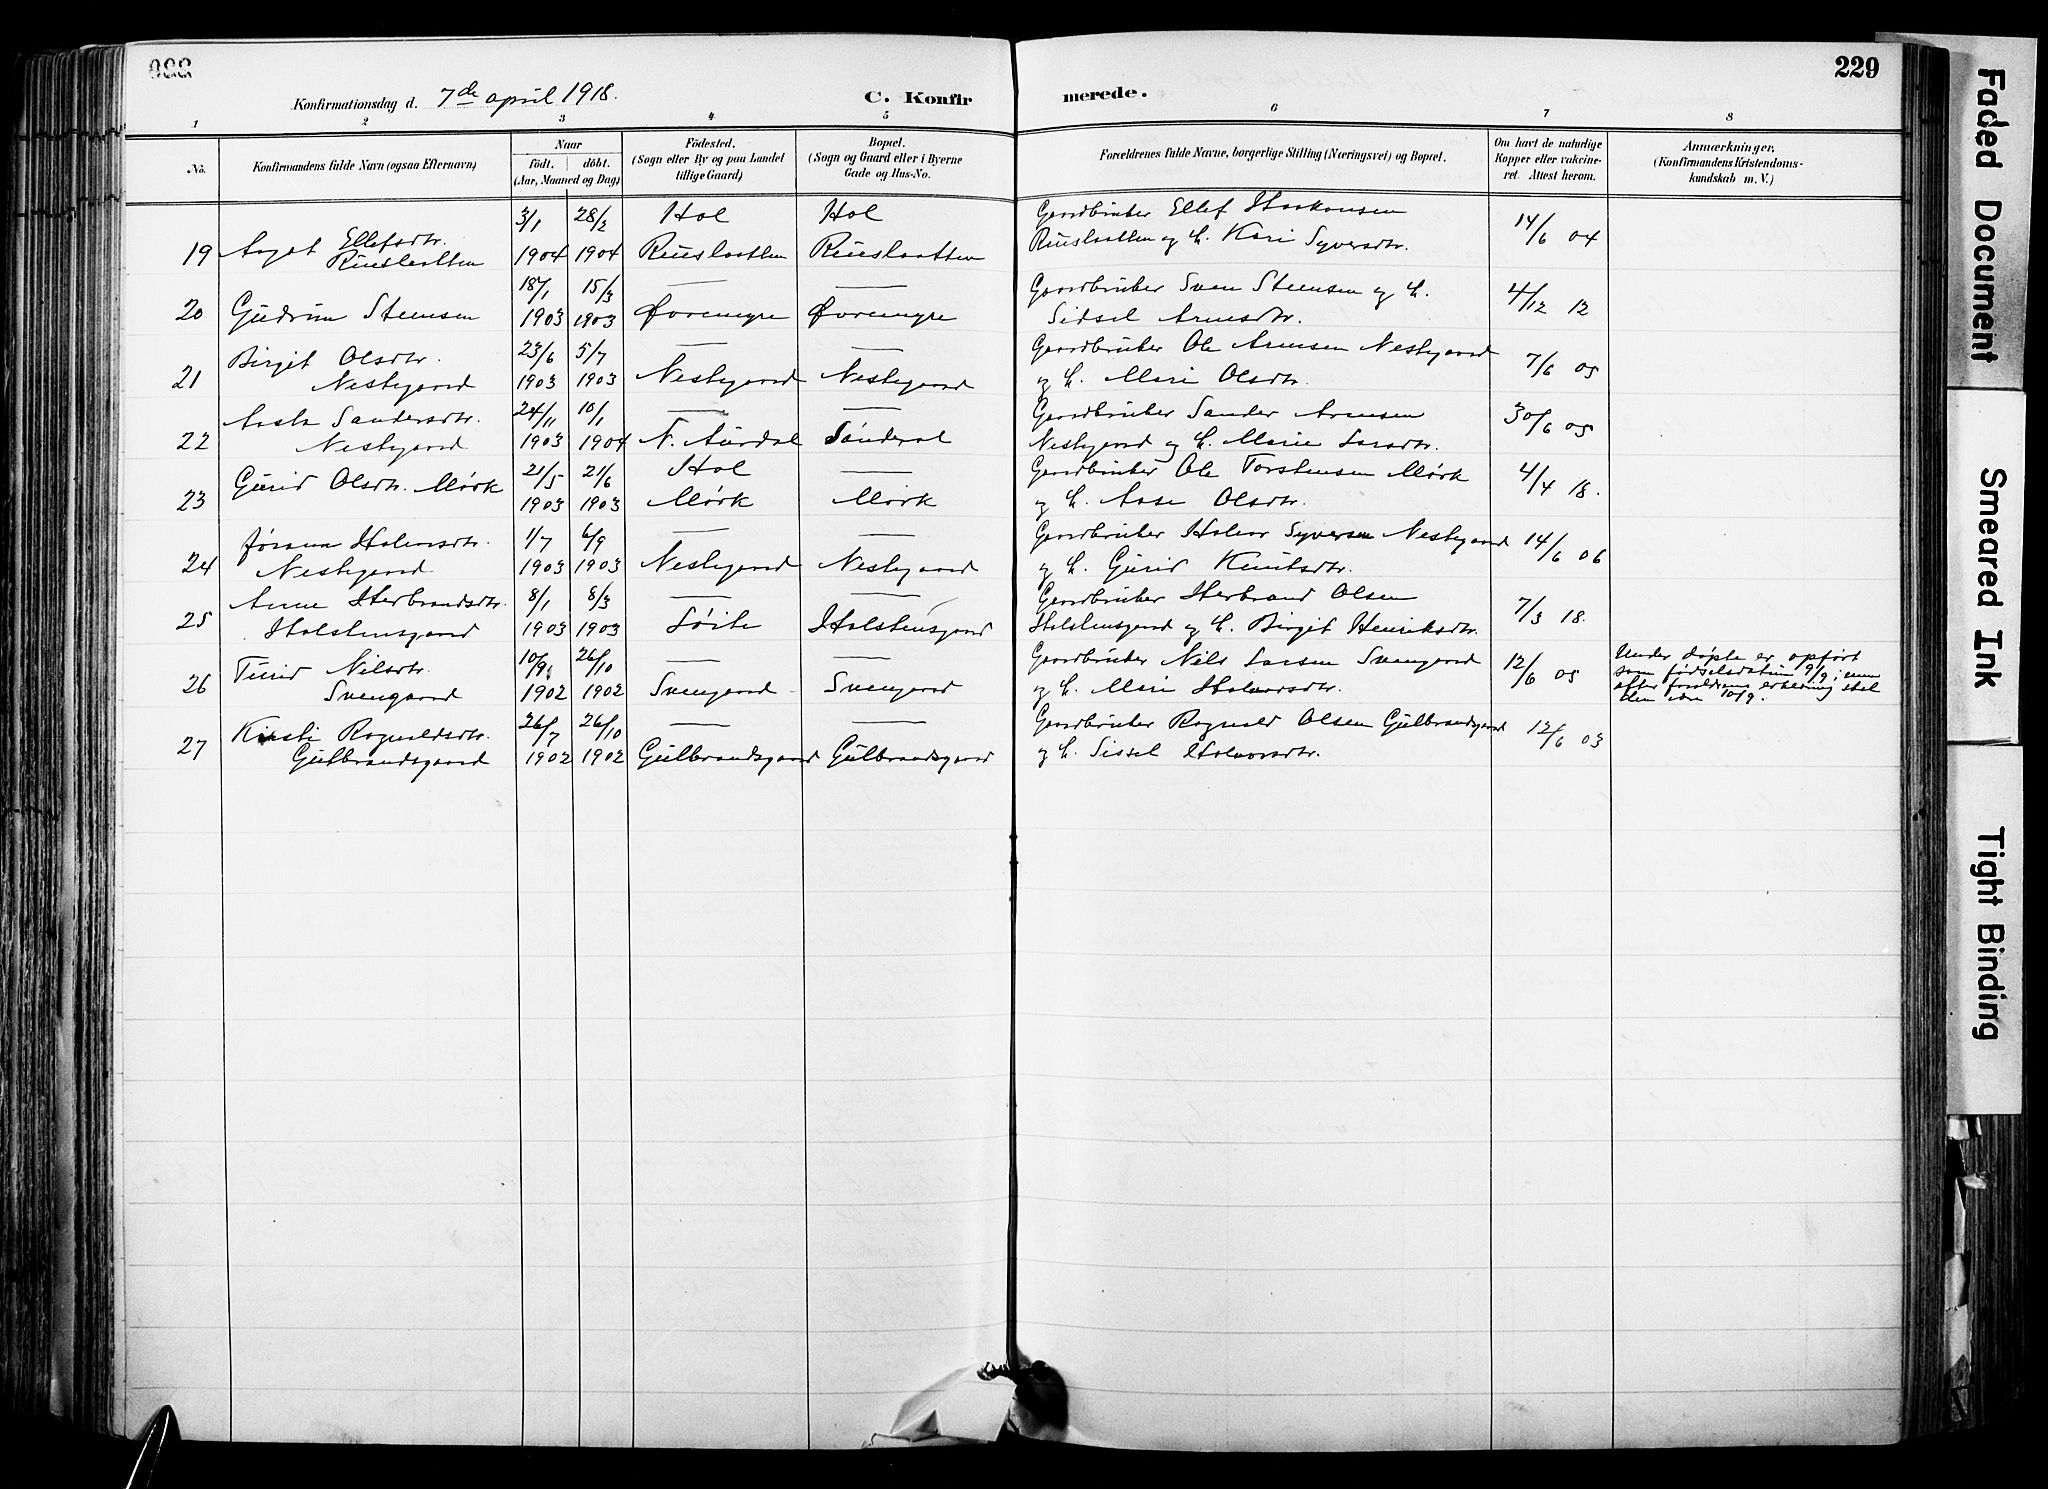 229
Konfirmationsdag d. 7de april 1918.
C. Konfirmerede.
1 2 3 4 5 6 7 8
No.
Konfirmandens fulde Navn (ogsaa Efternavn)
Naar
födt. döbt.
(Aar, Maaned og Dag)
Födested.
(Sogn eller By og paa Landet
tillige Gaard)
Bopæl.
(Sogn og Gaard eller i Byerne
Gade og Hus-No.
Forældrenes fulde Navne, borgerlige Stilling (Næringsvei) og Bopæl.
Om havt de naturlige
Kopper eller vakcine-
ret. Attest herom.
Anmærkninger,
(Konfirmandens Kristendoms-
kundskab m. V.)
Ellefsdtr. 3/1 28/2 Hol Hol Gaardbruker Ellef Haakonsen 14/6 04
19 Aagot Ruuslaatten 1904 1904 Ruuslaatten Ruuslaatten Ruuslaatten og h. Kari Syversdtr.
18/1 15/3 — — Gaardbruker Sven Steensen og h. 4/12 12
20 Gudrun Steensen 1903 1903 Øvremyre Øvremyre Sidsel Arnesdtr.
Birgit Olsdtr. 23/6 5/7 — — Gaardbruker Ole Arnesen Nestegaard 7/6 05
21 Nestegaard 1903 1903 Nestegaard Nestegaard og h. Mari Olsdtr.
Aasta Sandersdtr. 24/11 10/1 — — Gaardbruker Sander Arnesen 30/6 05
22 Nestegaard 1903 1904 N. Aurdal Sønderal Nestegaard og h. Marie Larsdtr.
Gurid Olsdtr. Mørk 21/5 21/6 Hol — Gaardbruker Ole Torstensen Mørk 4/4 18.
23 1903 1903 Mørk Mørk og h. Aase Olsdtr.
Jøran Halvorsdtr. 1/7 6/9 — — Gaardbruker Halvor Syversen Nestegaard 14/6 06
24 Nestegaard 1903 1903 Nestegaard Nestegaard og h. Gurid Knutsdtr.
Anne Herbrandsdtr. 8/1 8/3 — — Gaardbruker Herbrand Olsen 7/3 18.
25 Holstensgaard 1903 1903 Løite Holstensgaard Holstensgaard og h. Birgit Henriksdtr.
Turid Nilsdtr. 10/9 26/10 — — Gaardbruker Nils Larsen Svengaard 12/6 05
26 Svengaard 1902 1902 Svengaard Svengaard og h. Mari Halvorsdtr.
Under døpte er opført
som fødselsdatum 9/9; men
efter forældrenes erklæring skal
den være 10/9.
Kirsti Ragnvaldsdtr. 26/7 26/10 — — Gaardbruker Ragnvald Olsen Gulbrandsgaard 12/6 03
27 Gulbrandsgaard 1902 1902 Gulbrandsgaard Gulbrandsgaard og h. Sissel Halvorsdtr.
Faded Document
Smeared Ink
Tight Binding